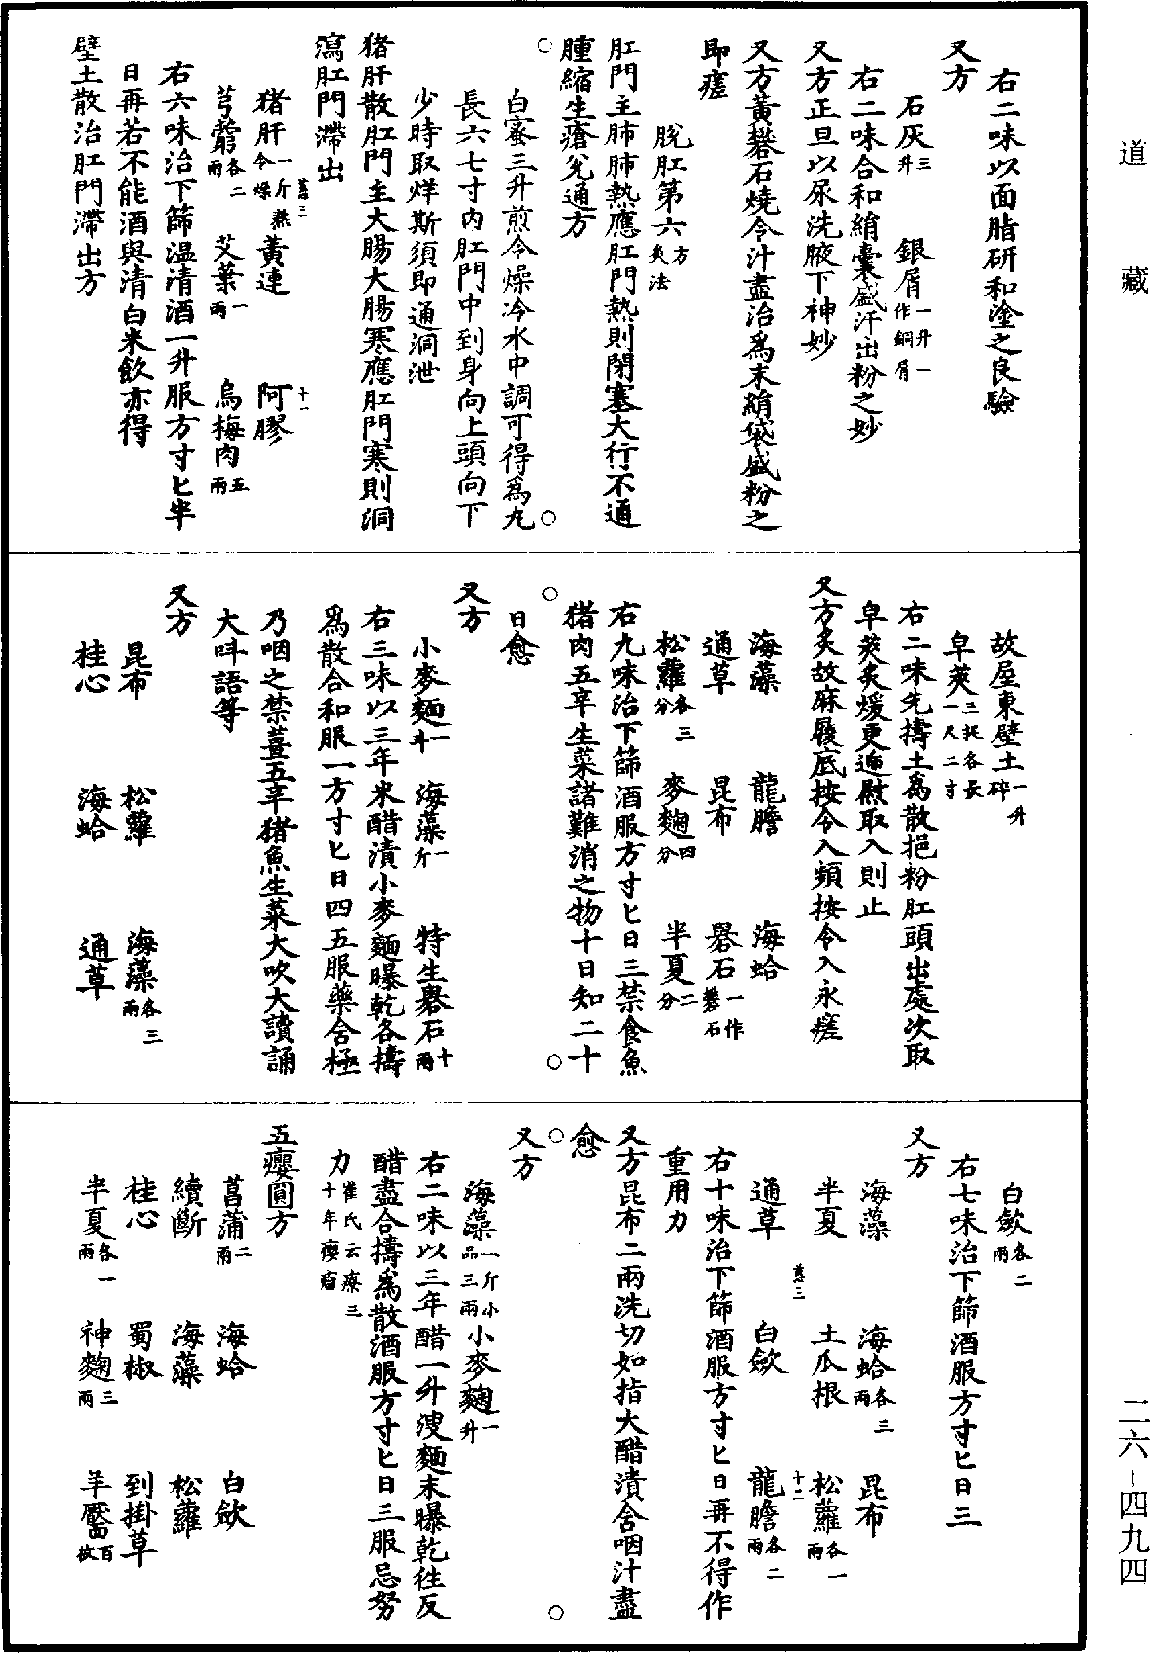 道藏
右二味以面脂研和塗之良驗
又方
石灰三升 銀屑一升一作銅屑
右二味合和絹囊盛汗出粉之妙
又方正旦以尿洗腋下神妙
又方黃礬石燒令汁盡治爲末絹袋盛粉之
即瘥
脫肛第六方灸法
肛門主肺肺熱應肛門熱則閉塞大行不通
腫縮生瘡兌通方
白蜜三升煎令燥冷水中調可得爲丸
長六七寸內肛門中到身向上頭向下
少時取烊斯須即通洞泄
猪肝散肛門主大腸大腸寒應肛門寒則洞
瀉肛門滯出
猪肝一斤熬令燥 黃連 阿膠
芎藭各二兩 艾葉一兩 烏梅肉五兩
右六味治下篩溫清酒一升服方寸匕半
日再若不能酒與清白米飲亦得
壁土散治肛門滯出方
故屋東壁土一升碎
皁莢三挺各長一尺二寸
右二味先擣土爲散挹粉肛頭出處次取
皁莢炙煖更遞慰取入則止
又方炙故麻履底按令入頻按令入永瘥
海藻 龍膽 海蛤
通草 昆布 礜石一作礬石
松蘿各三分 麥麴四分 半夏二分
右九味治下篩酒服方寸匕日三禁食魚
猪肉五辛生菜諸難消之物十日知二十
日愈
又方
小麥麵一斗 海藻一斤 特生礜石十兩
右三味以三年米醋漬小麥麵曝乾各擣
爲散合和服一方寸匕日四五服藥含極
乃咽之禁薑五辛猪魚生菜大吹大讀誦
大呌語等
又方
昆布 松蘿 海藻各三兩
桂心 海蛤 通草
白歛各二兩
右七味治下篩酒服方寸匕日三
又方
海藻 海蛤各三兩 昆布
半夏 土瓜根 松蘿各一兩
通草 白歛 龍膽各二兩
右十味治下篩酒服方寸匕日再不得作
重用力
又方昆布二兩洗切如指大醋漬含咽汁盡
愈
又方
海藻一斤小品三兩 小麥麴一升
右二味以三年醋一升溲麵末曝乾往反
醋盡合擣爲散酒服方寸匕日三服忌努
力崔氏云療三十年癭瘤
五癭圓方
菖蒲二兩 海蛤 白歛
續斷 海藻 松蘿
桂心 蜀椒 到掛草
半夏各一兩 神麴三兩 羊靨百枚
二六－四九四